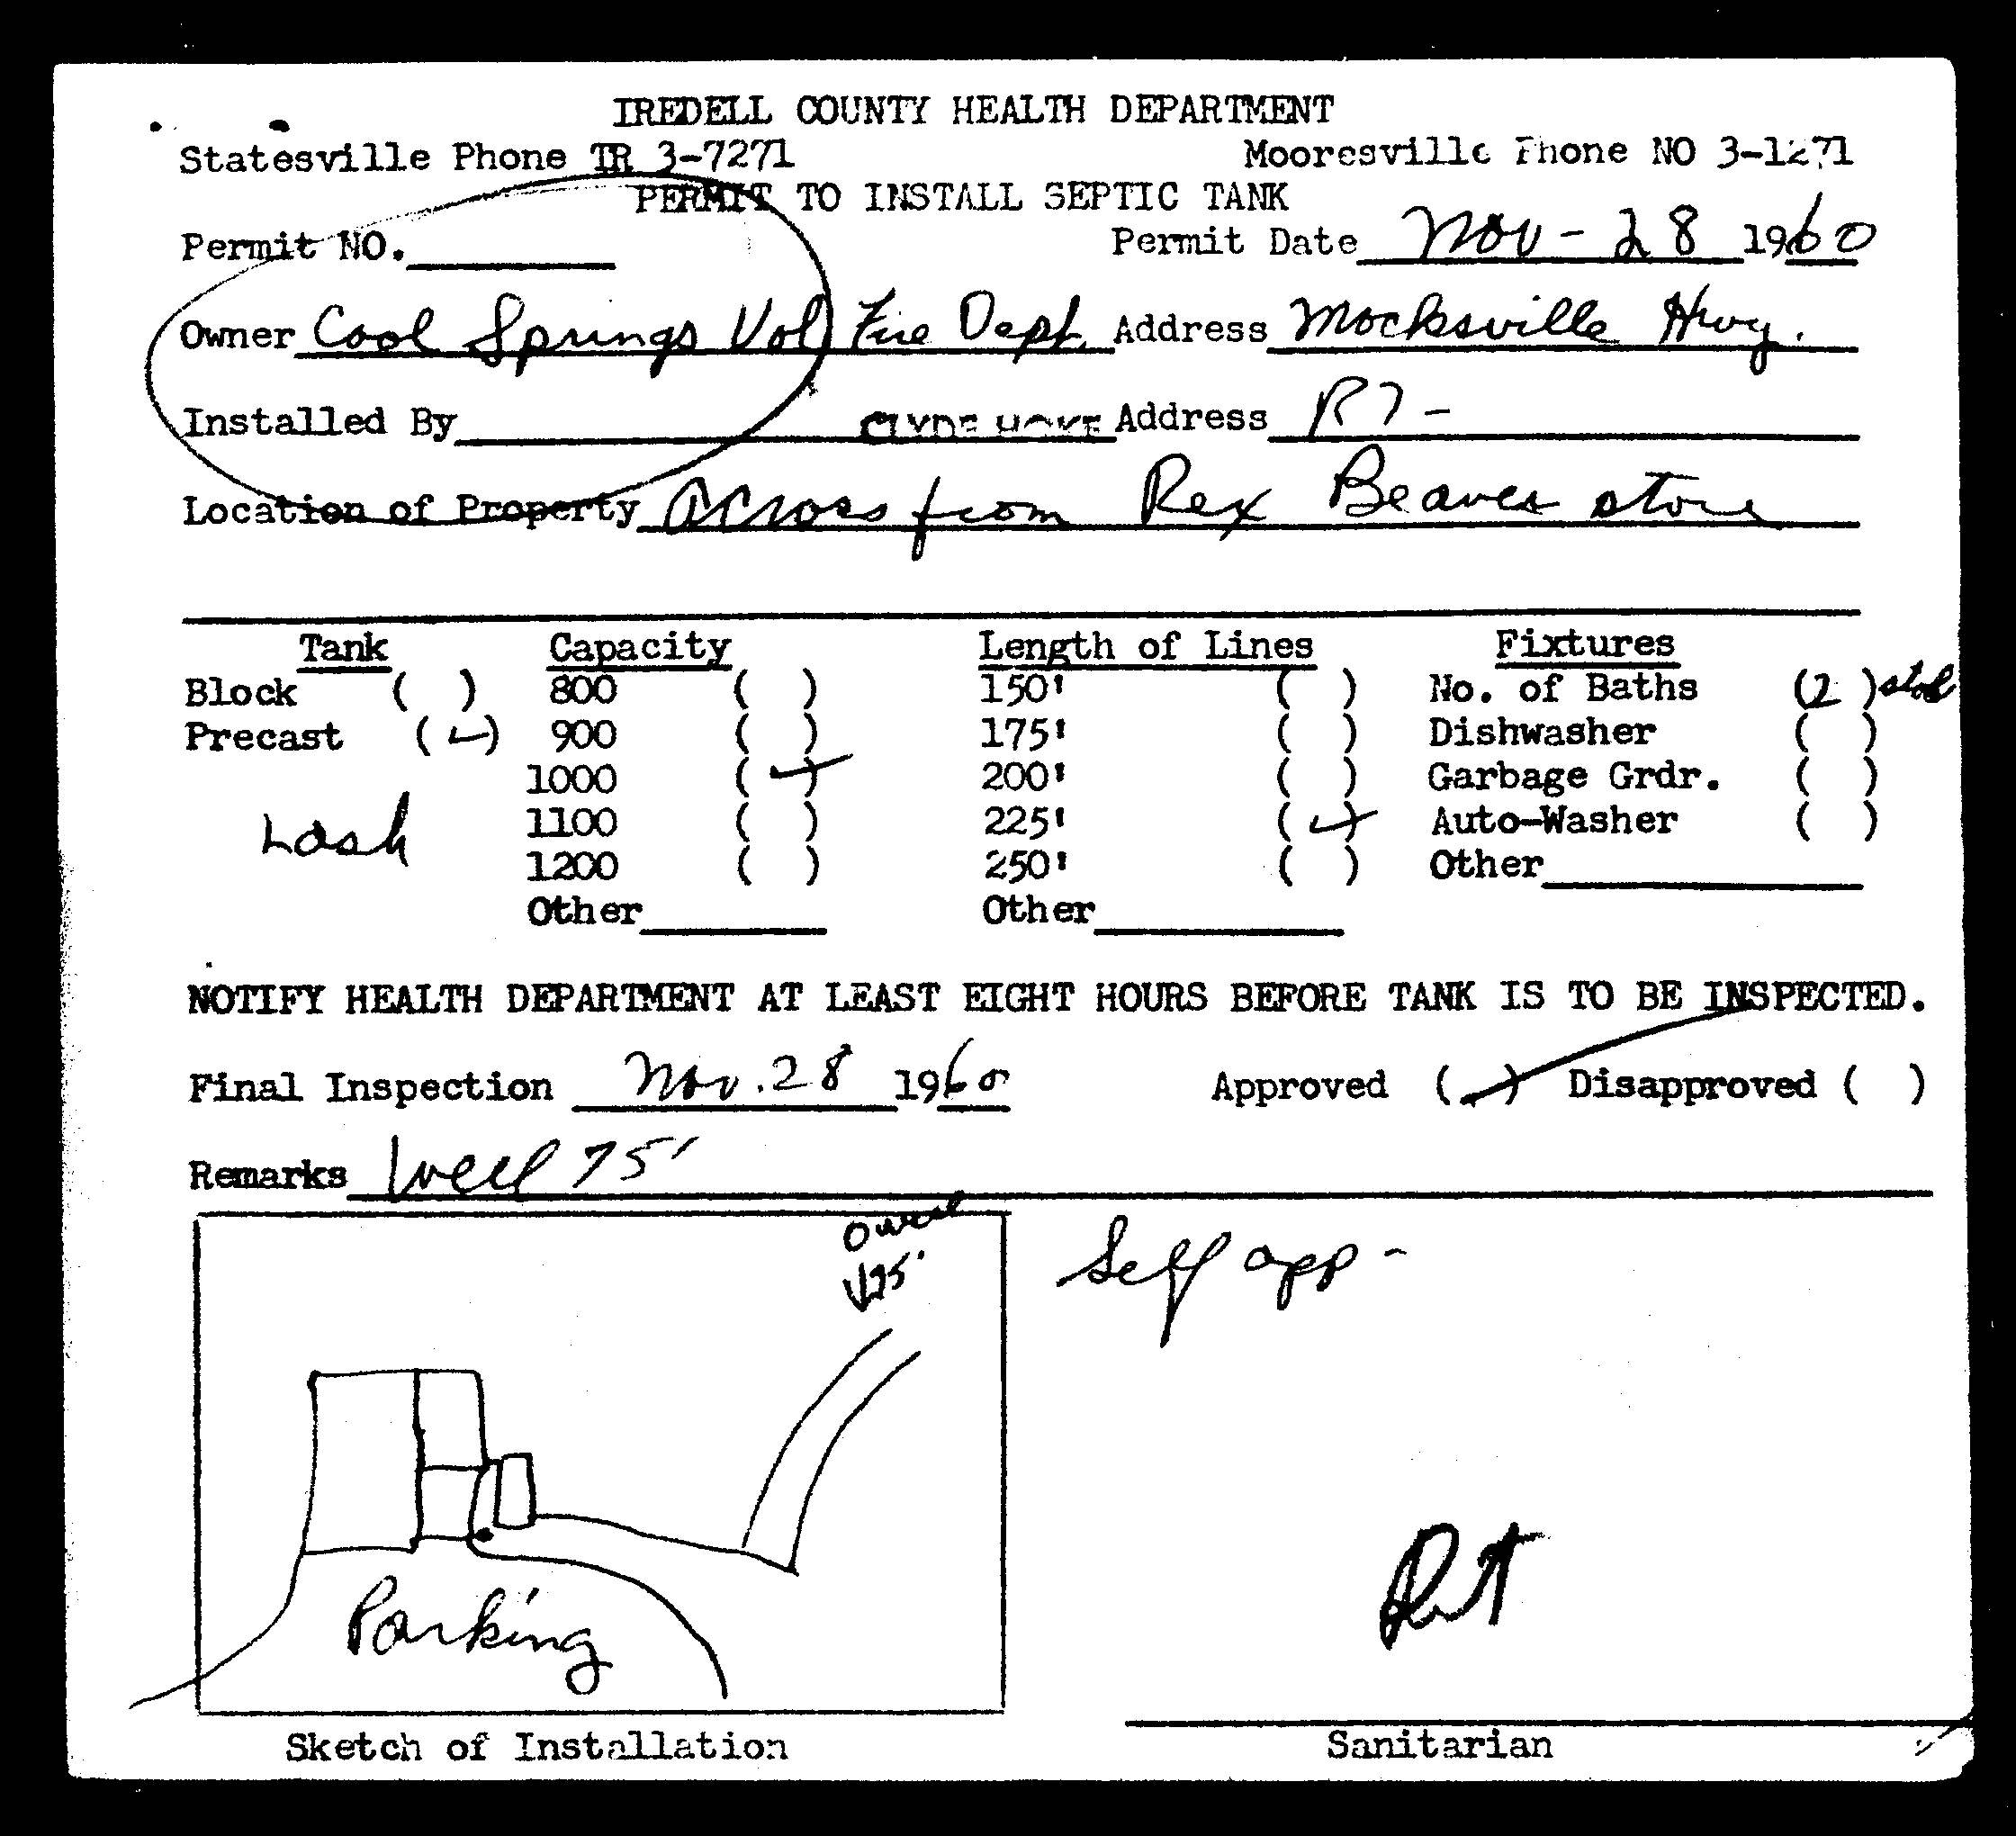 IREDELL COUNTY HEALTH DEPARTMENT
Statesville Phone TR 3-7271 Mooresville Phone NO 3-1271
PERMIT TO INSTALL SEPTIC TANK
Permit NO. Permit Date Nov - 28 1960
Owner Cool Springs Vol Fire Dept. Address Mocksville Hwy.
Installed By CLYDE HOKE Address R7 -
Location of Property Across from Rex Beaver store
Tank Capacity Length of Lines Fixtures
Block ( ) 800 ( ) 150' ( ) No. of Baths (2 )
Precast (✓) 900 ( ) 175' ( ) Dishwasher ( )
1000 (✓) 200' ( ) Garbage Grdr. ( )
Lash 1100 ( ) 225' (✓) Auto-Washer ( )
1200 ( ) 250' ( ) Other
Other Other
NOTIFY HEALTH DEPARTMENT AT LEAST EIGHT HOURS BEFORE TANK IS TO BE INSPECTED.
Final Inspection Nov. 28 1960 Approved (✓) Disapproved ( )
Remarks Well 75'
O well
75'
Self app -
Parking
Sketch of Installation Sanitarian